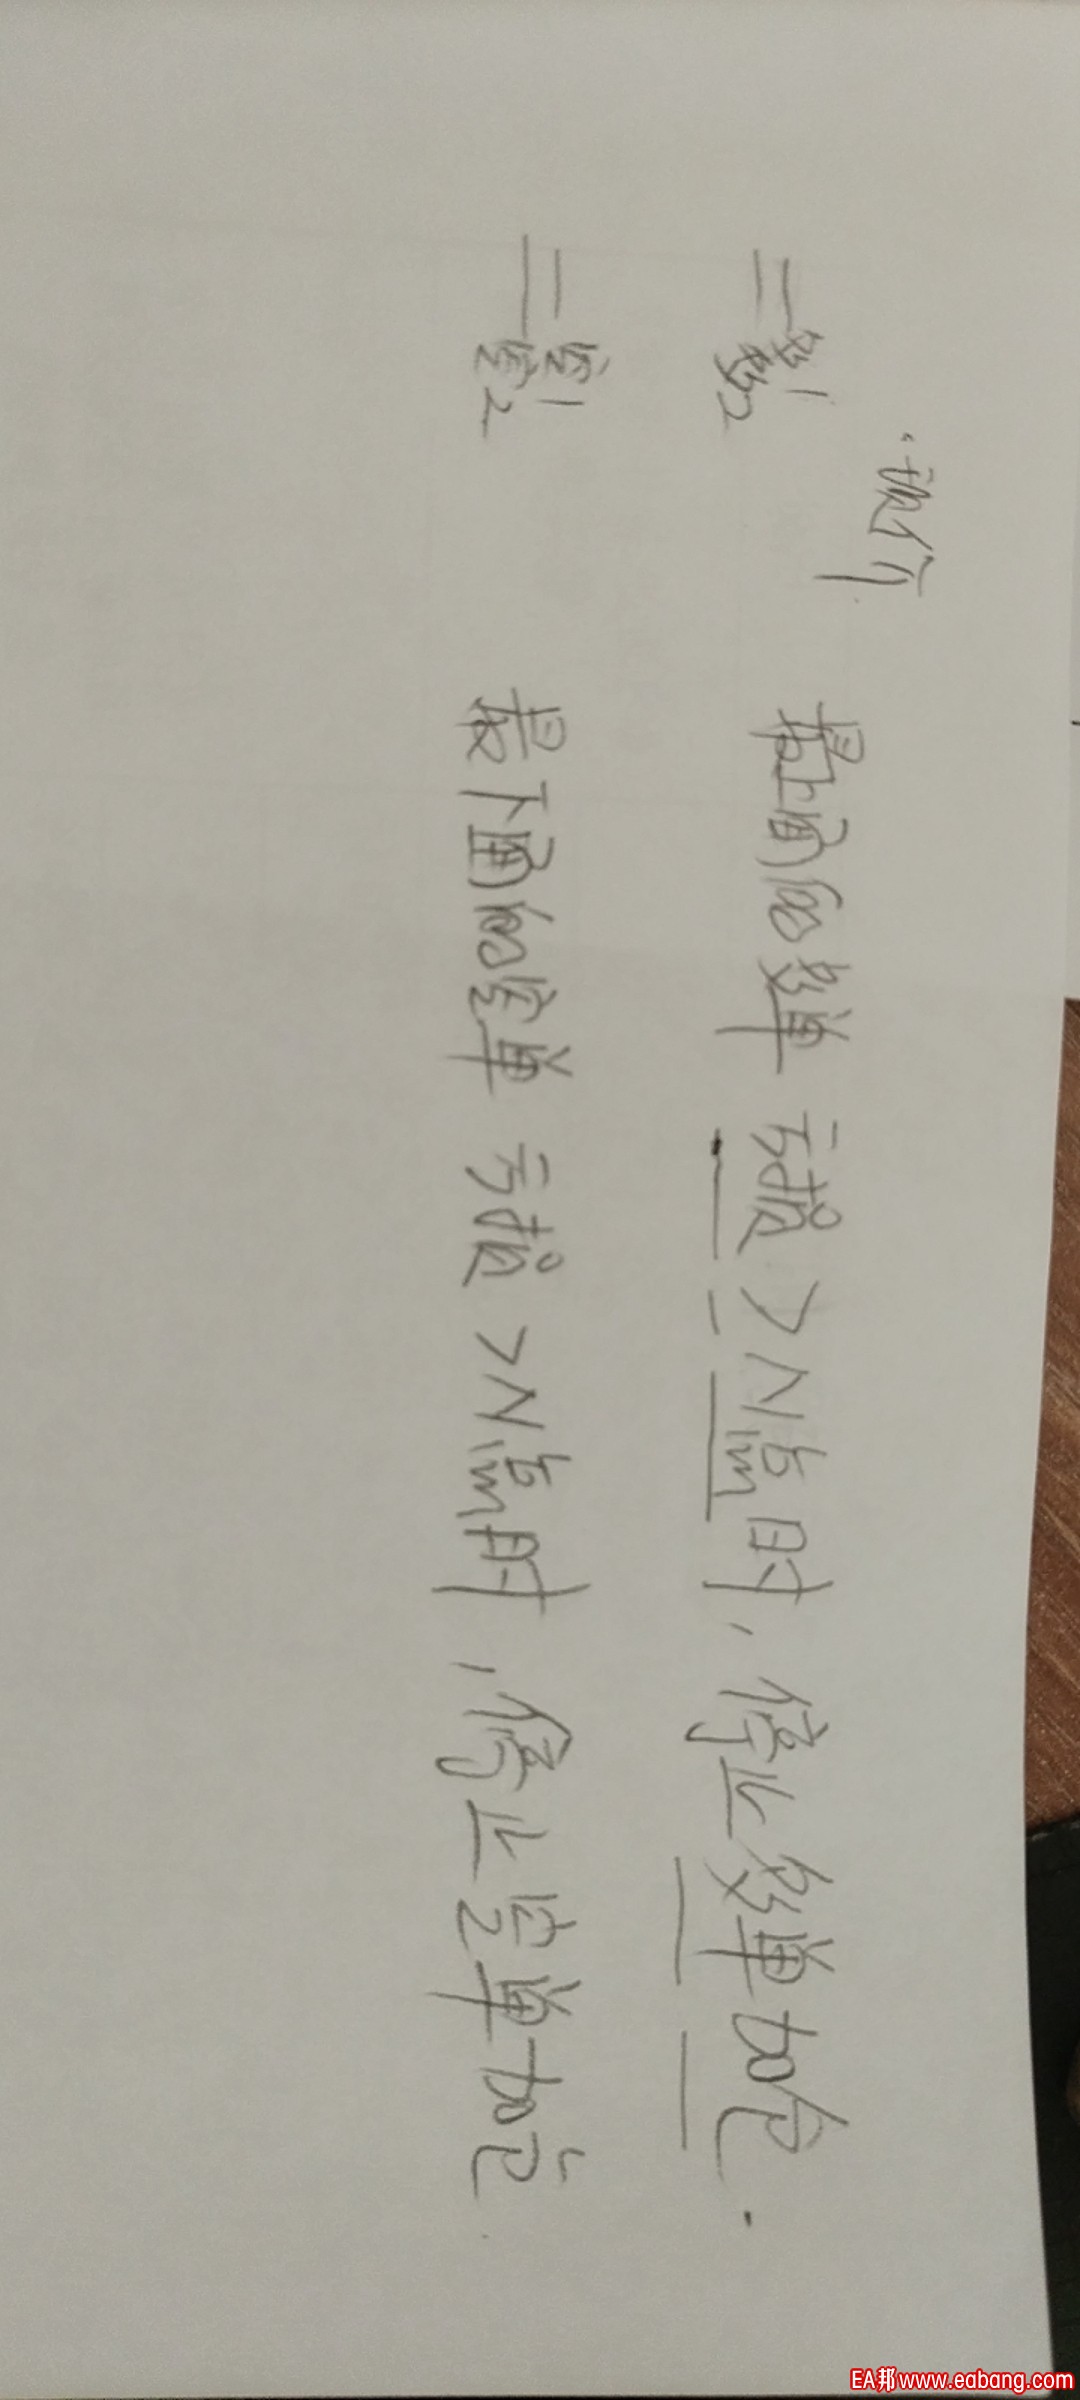 现价
多1
多2
最上面的多单亏损>N点时，停止多单加仓.
空1
空2
最下面的空单亏损>N点时，停止空单加仓.
EA邦www.eabang.com